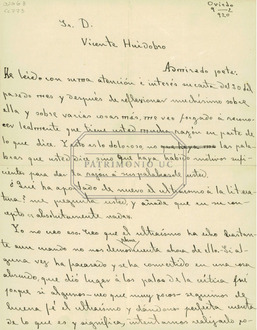 Oviedo
9
920
Sr. D.
Vicente Huidobro
Admirado poeta:
He leído con suma atención e interés su carta del 20 del
pasado mes y después de reflexionar muchísimo sobre
ella y sobre varias cosas más me veo forzado a recono-
cer lealmente que tiene usted mucha razón en parte de
lo que dice. Y esto es doloroso, no las pala-
bras que usted dice sino que haya habido motivos sufi-
cientes para dar la razón a sus palabras de usted.
PATRIMONIO UC
¿Qué ha aportado de nuevo el ultraísmo a la litera-
tura? me pregunta usted y añade que en su con-
cepto absolutamente nada.
Yo no creo eso. Creo que el ultraísmo ha sido bastan-
te aun cuando no nos demos cuenta ahora de ella. Si al-
guna vez ha fracasado y se ha convertido en una cosa
que dió lugar a los palos de la crítica fué
porque si algunos que muy pocos seguimos de
buena fé el ultraísmo y dándonos perfecta cuenta
de lo que es y significa, intentamos